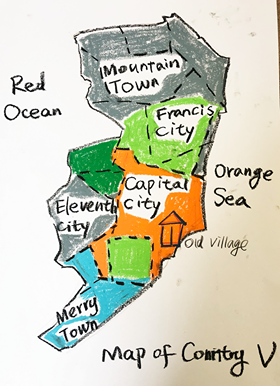 Mountain
Town
Red
Ocean
Francis
City
Orange
Sea
Capital
City
Eleventh
City
Old Village
Merry
Town
Map of Country V